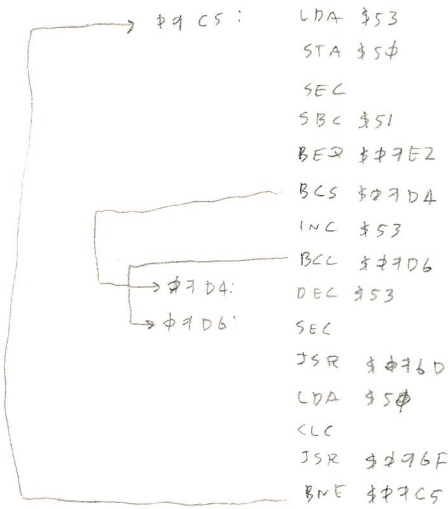 Ø7C5: LDA $53
STA $5Ø
SEC
SBC $51
BEQ $Ø7E2
BCS $Ø7D4
INC $53
BCC $Ø7D6
Ø7D4: DEC $53
Ø7D6: SEC
JSR $Ø76D
LDA $5Ø
CLC
JSR $Ø76F
BNE $Ø7C5